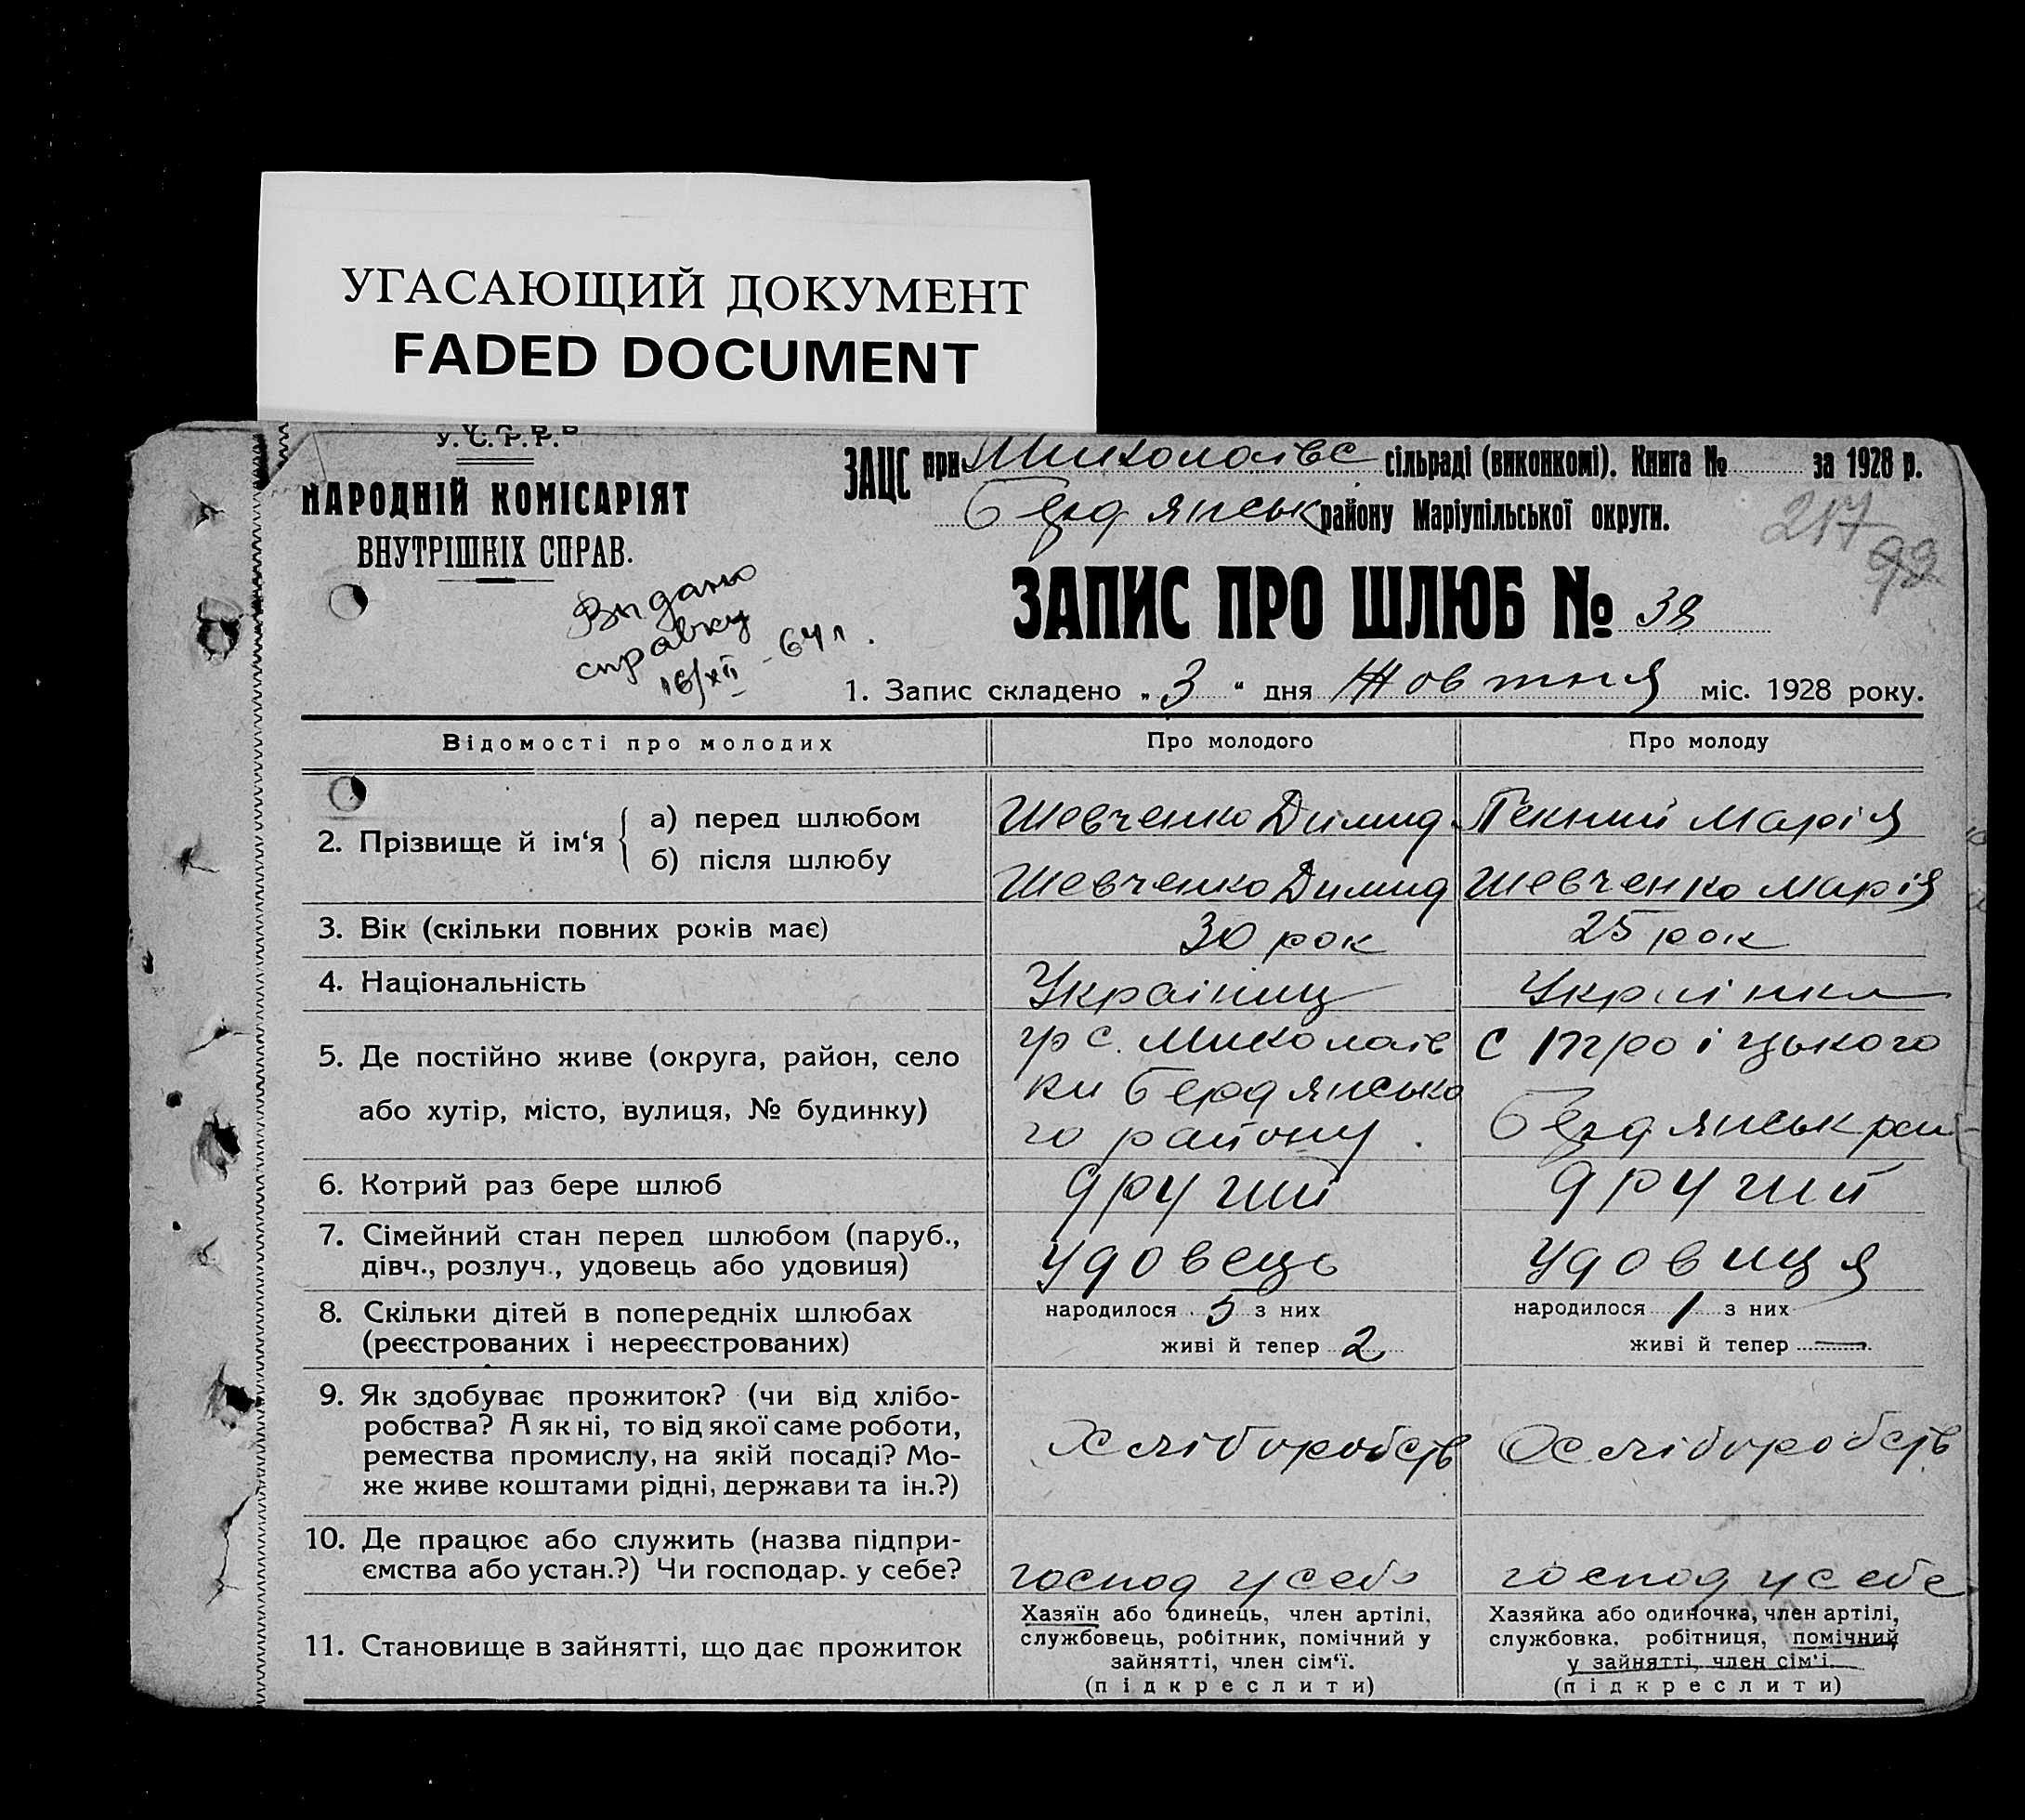 УГАСАЮЩИЙ ДОКУМЕНТ
FADED DOCUMENT
У. С. Р. Р.
НАРОДНІЙ КОМІСАРІЯТ
ВНУТРІШНІХ СПРАВ.
ЗАЦС при Миколаївс сільраді (виконкомі). Книга № за 1928 р.
Бердянськ району Маріупільської округи.
217
92
ЗАПИС ПРО ШЛЮБ № 38
Видано
справку
16/XII - 64 р.
1. Запис складено „ 3 “ дня Жовтня міс. 1928 року.
Відомості про молодих
Про молодого
Про молоду
2. Прізвище й ім‘я
а) перед шлюбом
Шевченко Димид
Марія
б) після шлюбу
Шевченко Димид
Шевченко Марія
3. Вік (скільки повних років має)
30 рок
25 рок
4. Національність
Українц
Українка
5. Де постійно живе (округа, район, село
або хутір, місто, вулиця, № будинку)
гр с. Миколаїв
ки Бердянсько
го району.
с Троіцького
Бердянськ рай
6. Котрий раз бере шлюб
другий
другий
7. Сімейний стан перед шлюбом (паруб.,
дівч., розлуч., удовець або удовиця)
удовець
удовиця
8. Скільки дітей в попередніх шлюбах
(реєстрованих і нереєстрованих)
народилося 5 з них
живі й тепер 2
народилося 1 з них
живі й тепер —
9. Як здобуває прожиток? (чи від хлібо-
робства? А як ні, то від якої саме роботи,
ремества промислу, на якій посаді? Мо-
же живе коштами рідні, держави та ін.?)
Хліборобств
Хліборобств
10. Де працює або служить (назва підпри-
ємства або устан.?) Чи господар. у себе?
господ у себе
господ у себе
11. Становище в зайнятті, що дає прожиток
Хазяїн або одинець, член артілі,
службовець, робітник, помічний у
зайнятті, член сім‘ї.
(підкреслити)
Хазяйка або одиночка, член артілі,
службовка, робітниця, помічний
у зайнятті, член сім‘і.
(підкреслити)